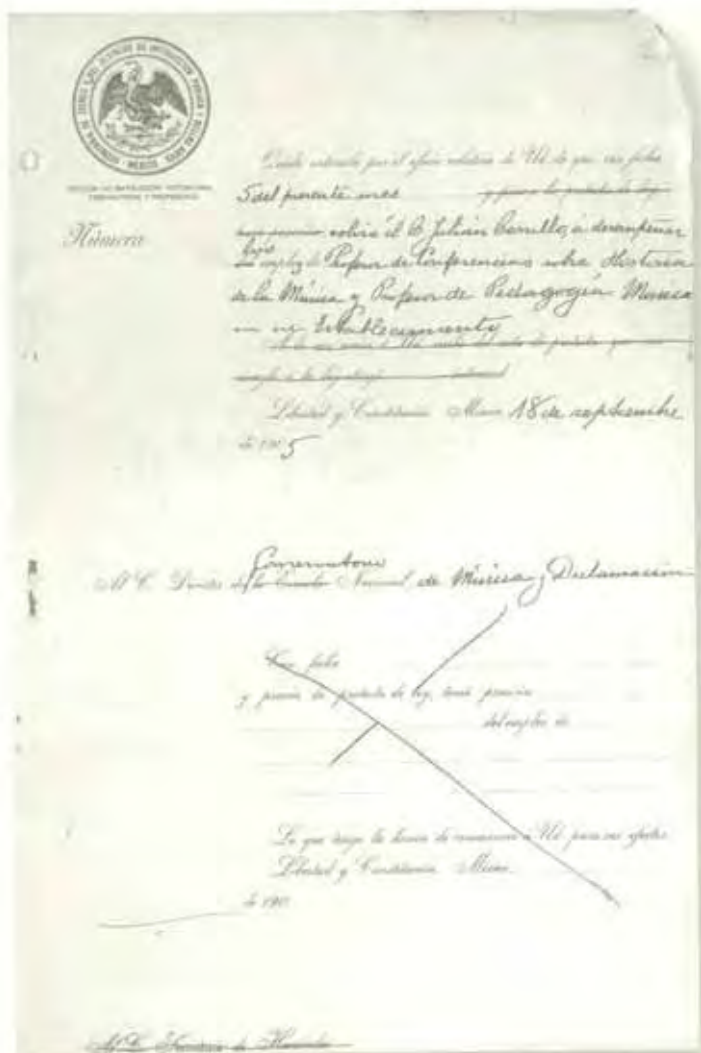 SECRETARIA DE ESTADO Y DEL DESPACHO DE INSTRUCCION PUBLICA Y BELLAS ARTES
MEXICO
Número
Quedo enterado por el oficio relativo de Ud. de que con fecha
5 del presente mes y previa la protesta de ley
volvió el C. Julián Carrillo, a desempeñar
empleo de Profesor de Conferencias sobre Historia
de la Música y Profesor de Pedagogía Musical
en ese Establecimiento
Libertad y Constitución México 18 de septiembre
de 1905
Al C. Director de la Escuela Nacional de Música y Declamación
Conservatorio
Con fecha
y previa la protesta de ley, tomó posesión
del empleo de
Lo que tengo la honra de comunicar a Ud. para sus efectos.
Libertad y Constitución México
de 190
Al C. Secretario de Hacienda